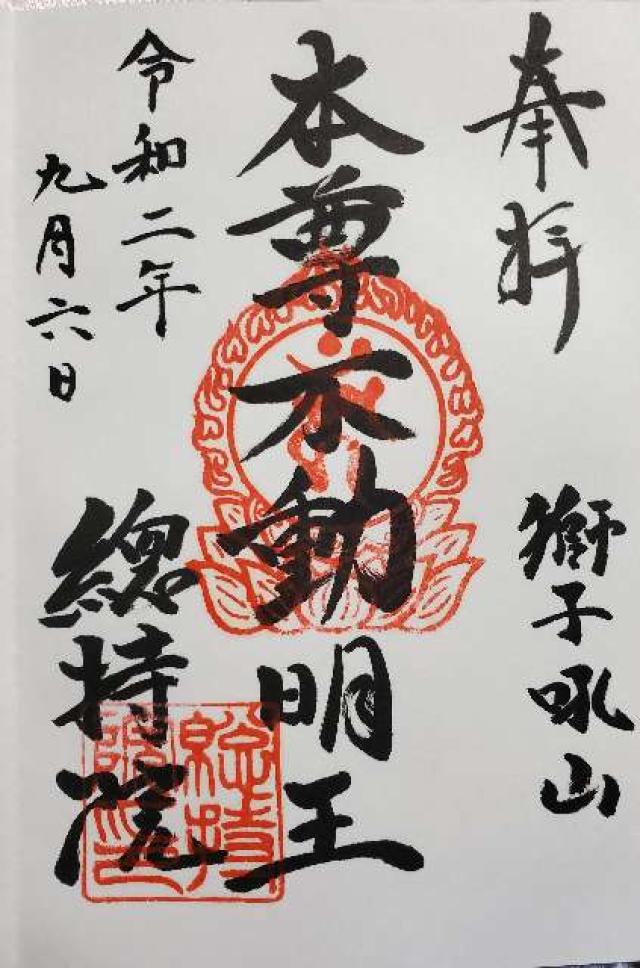 奉拝
獅子吼山
本尊不動明王
令和二年
九月六日
總持院